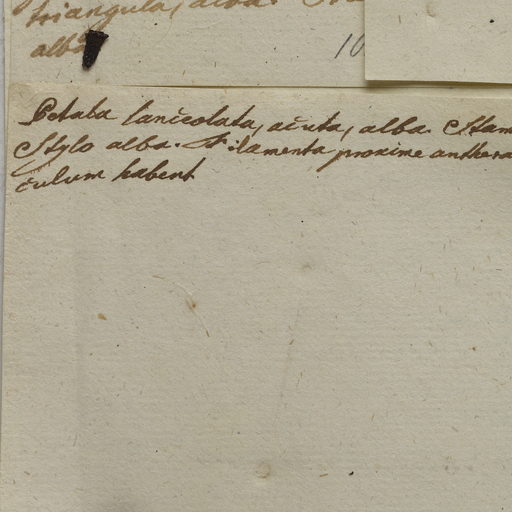 triangula, alba.
alba
10
Petala lanceolata, acuta, alba. Stam
Stylo alba. Filamenta proxime anthera
culum habent